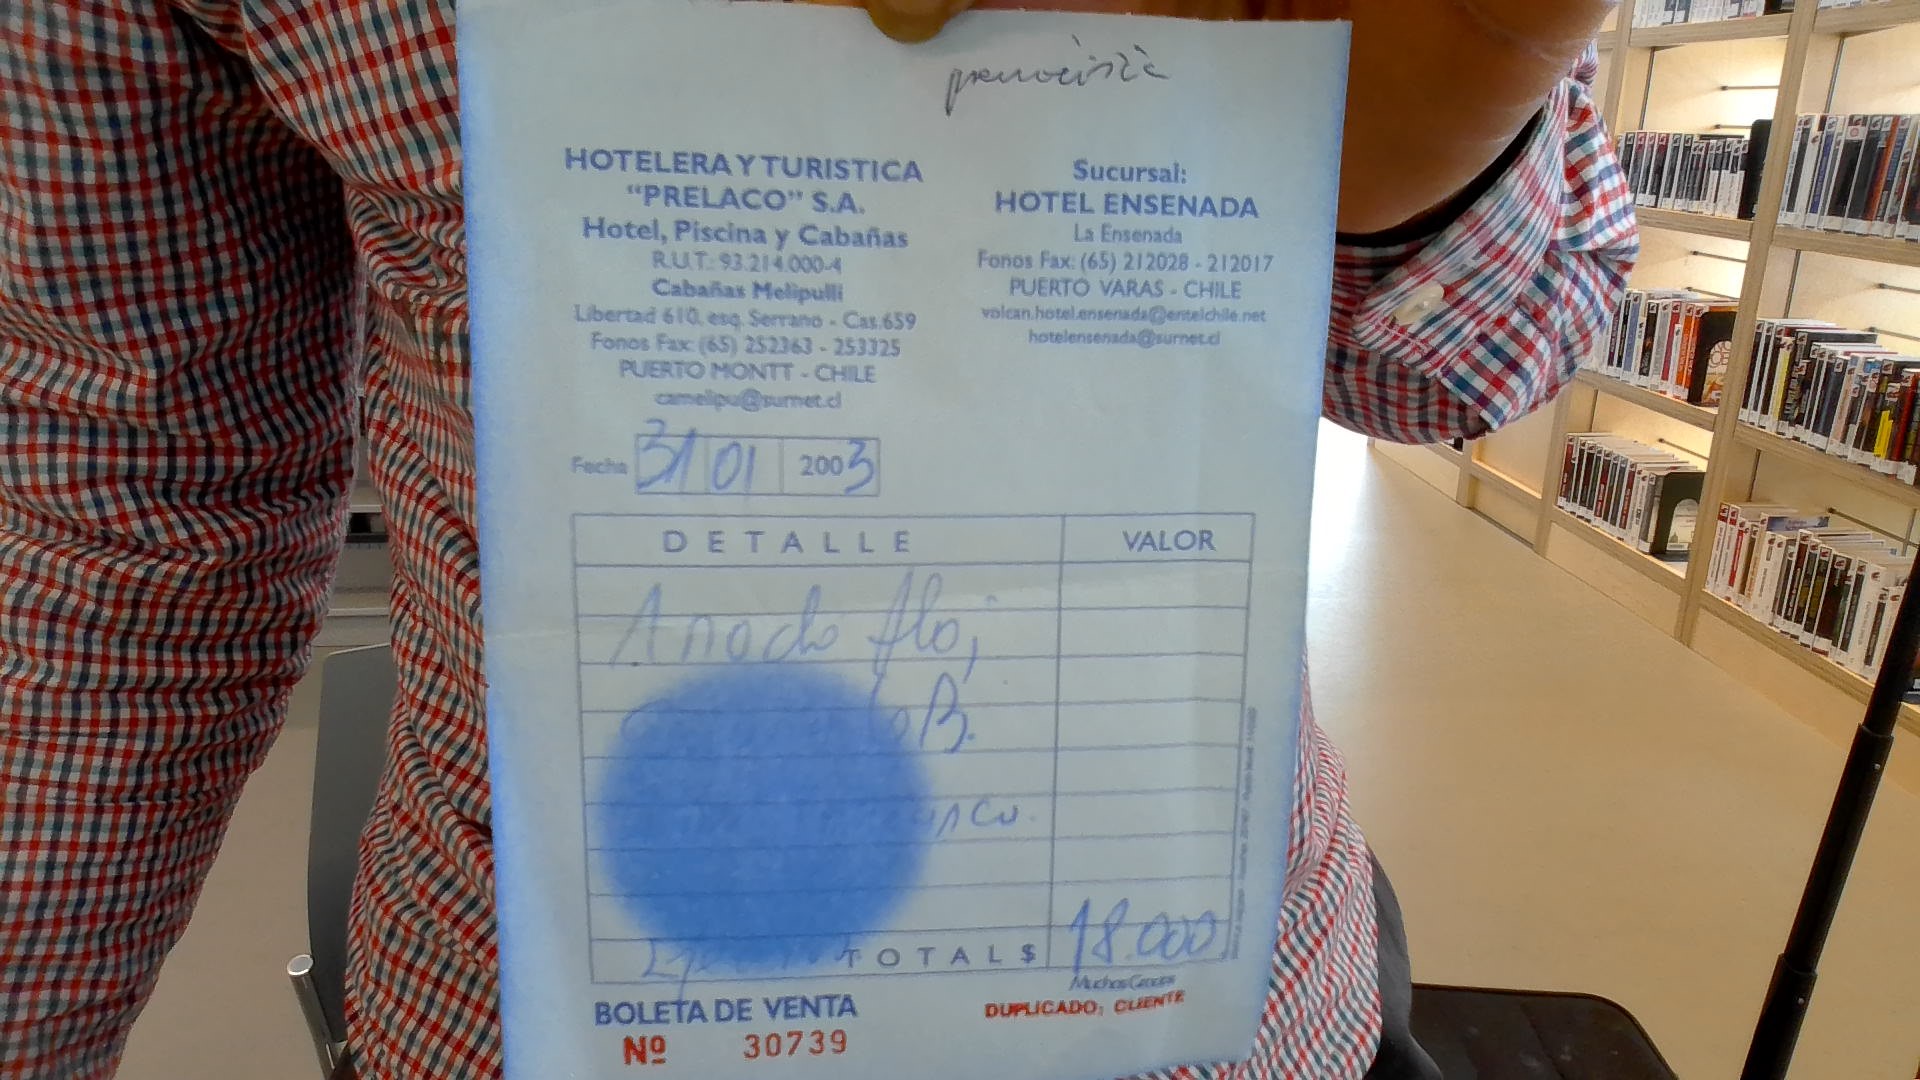 HOTELERA Y TURISTICA
"PRELACO" S.A.
Hotel, Piscina y Cabañas
R.U.T.: 93.214.000-4
Cabañas Melipulli
Libertad 610, esq. Serrano - Cas.659
Fonos Fax: (65) 252363 - 253325
PUERTO MONTT - CHILE
camelipu@surnet.cl
Sucursal:
HOTEL ENSENADA
La Ensenada
Fonos Fax: (65) 212028 - 212017
PUERTO VARAS - CHILE
volcan.hotel.ensenada@entelchile.net
hotelensenada@surnet.cl
Fecha 31 01 2003
DETALLE VALOR
B.
TOTAL $ 18.000
Muchas Gracias
BOLETA DE VENTA
DUPLICADO: CLIENTE
Nº 30739